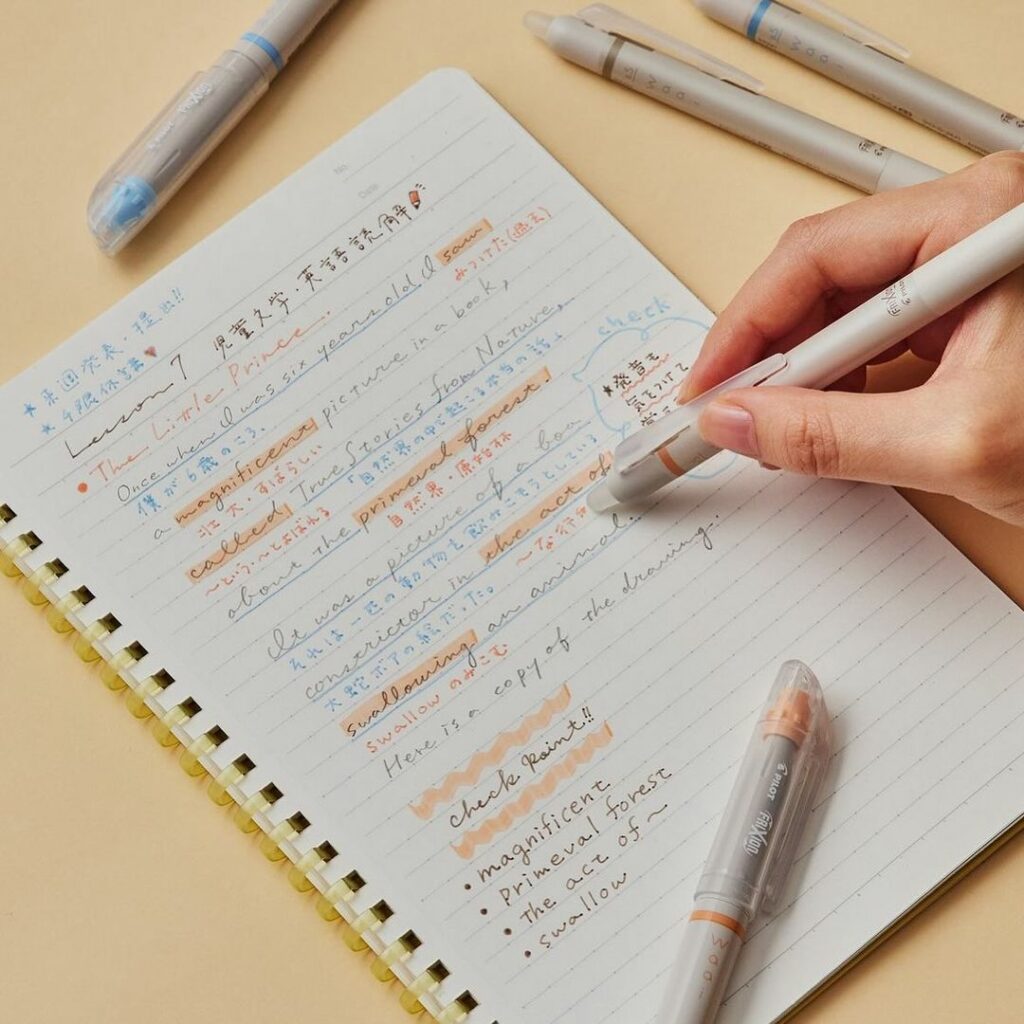 No.
Date
★来週発表・提出!!
★4限休講
Lesson 7 児童文学・英語読解
• The Little Prince.
Once when I was six years old I saw
僕が6歳のころ。
みつけた(過去)
a magnificent picture in a book,
壮大・すばらしい
called True Stories from Nature,
~という・~とよばれる
「自然界の中で起こる本当の話」
about the primeval forest.
自然界・原始林
It was a picture of a boa
それは一匹の動物を飲みこもうとしている
constrictor in the act of
大蛇ボアの絵だった。
swallowing an animal.
swallow のみこむ
Here is a copy of the drawing.
check
★発音も
気をつけて
check point!!
• magnificent
• Primeval forest
• The act of~
• swallow
FRIXION
PILOT
PILOT
FRIXION
Waai
FRIXION
Waai
Waai